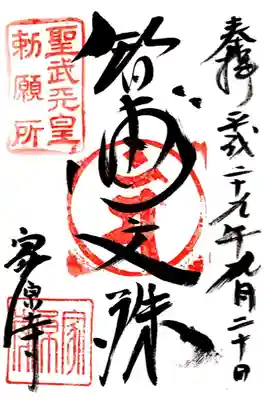 奉拝 平成二十九年九月二十日
智恵文殊
聖武天皇
勅願所
家原寺